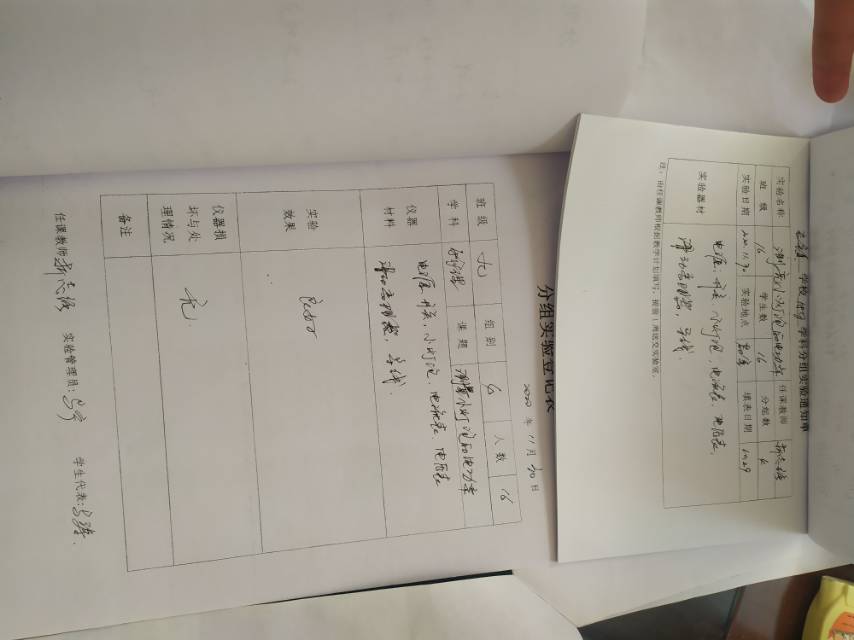 学校 学科分组实验通知单
实验名称 测量小灯泡的电功率 任课教师
班级 16 学生数 16 分组数 6
实验日期 2020.11.30 实验地点 填表日期 11.29
实验器材 电源、开关、小灯泡、电流表、电压表、
滑动变阻器、导线.
注：由任课教师根据教学计划填写，提前1周送交实验室。
分组实验登记表
2020年11月30日
班级 九 组别 6 人数 16
学科 课题 测量小灯泡的电功率
仪器材料 电源、开关、小灯泡、电流表、电压表
滑动变阻器、导线.
实验效果
仪器损坏与处理情况 无.
备注
任课教师 实验管理员: 学生代表: